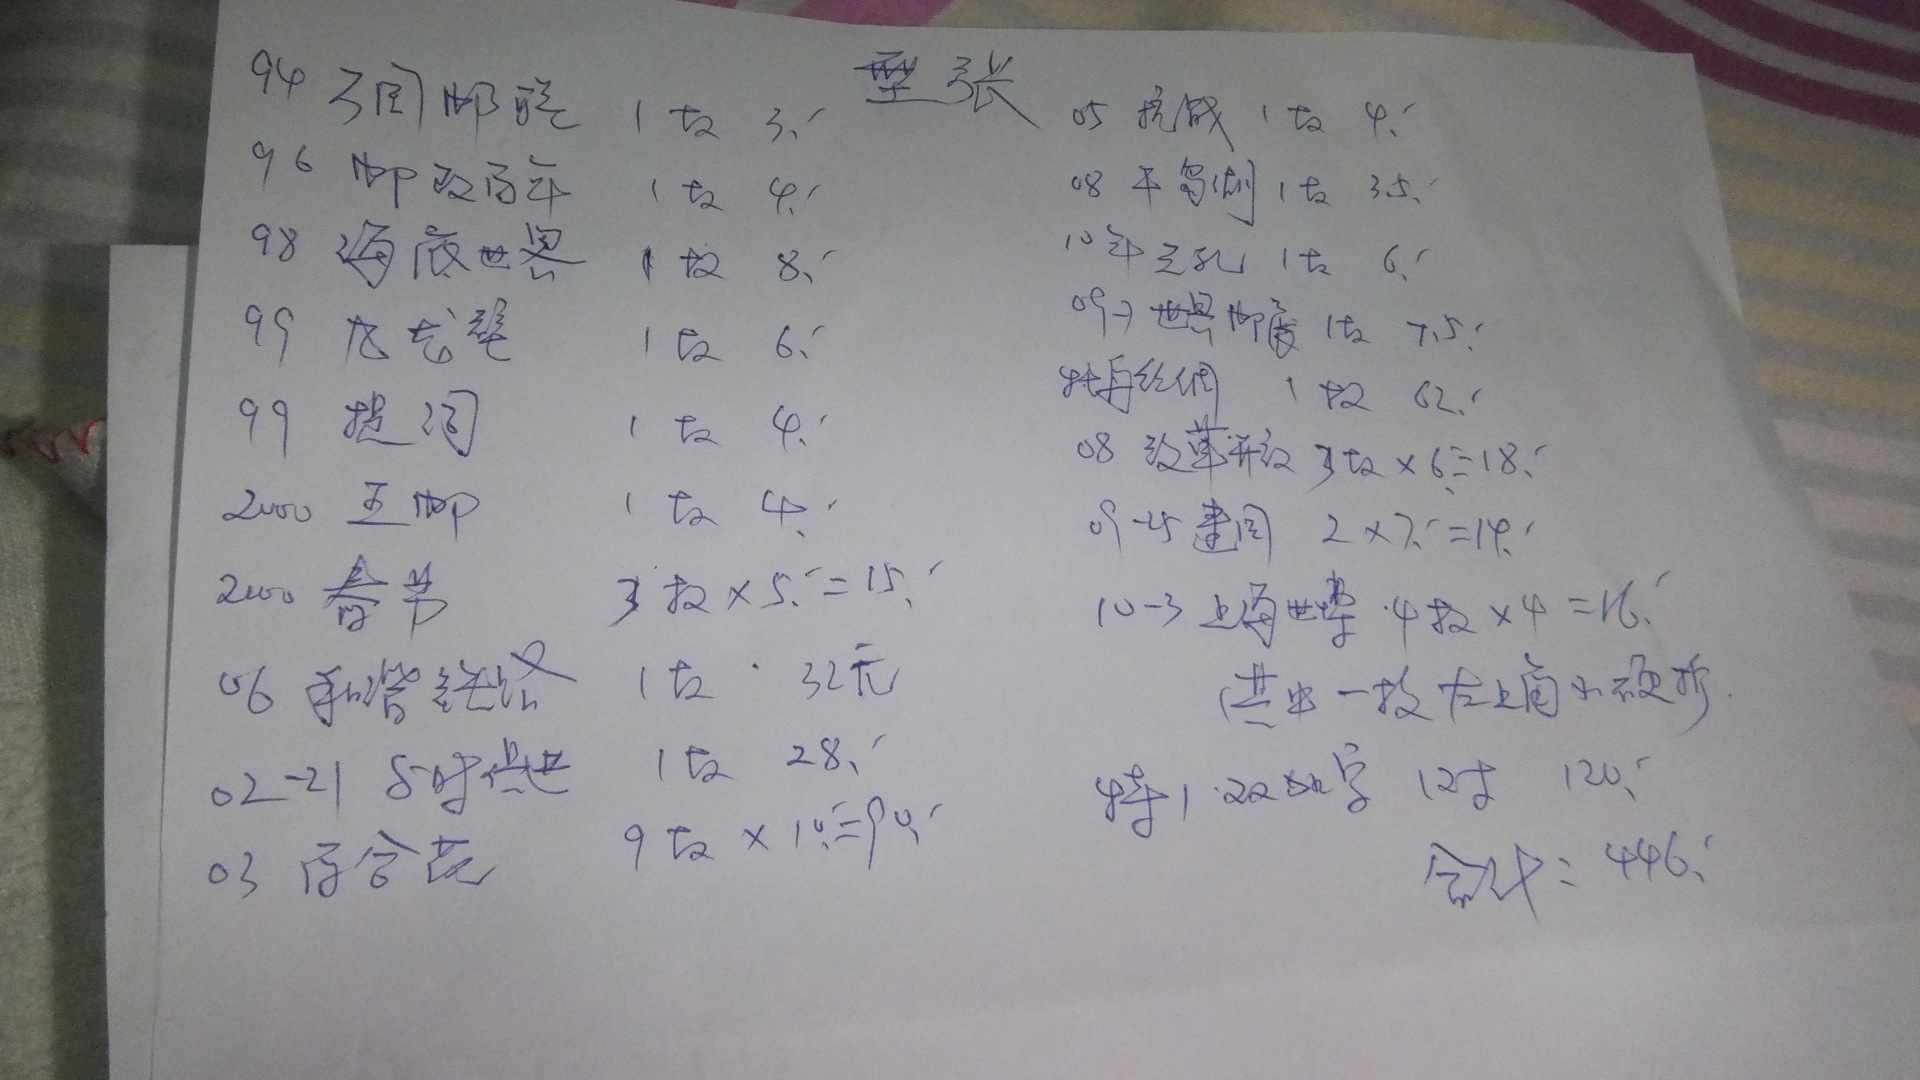 型张
94 3国邮展 1枚 3.
96 邮政百年 1枚 4.
98 海底世界 1枚 8.
99 九龙壁 1枚 6.
99 提词 1枚 4.
2000 王邮 1枚 4.
2000 春节 3枚×5.=15.
06 和谐铁路 1枚 32元
02-21 与时俱进 1枚 28.
03 百合花 9枚×10.=90.
05 抗战 1枚 4.
08 千岛湖 1枚 3.5.
10年 孔 1枚 6.
09-7 世界邮展 1枚 7.5.
丝绸 1枚 62.
08 改革开放 3枚×6=18.
09-25 建国 2×7.=14.
10-3 上海世博 4枚×4=16.
(其中一枚左上角小硬折.
特1 双如字 12寸 120.
合计: 446.